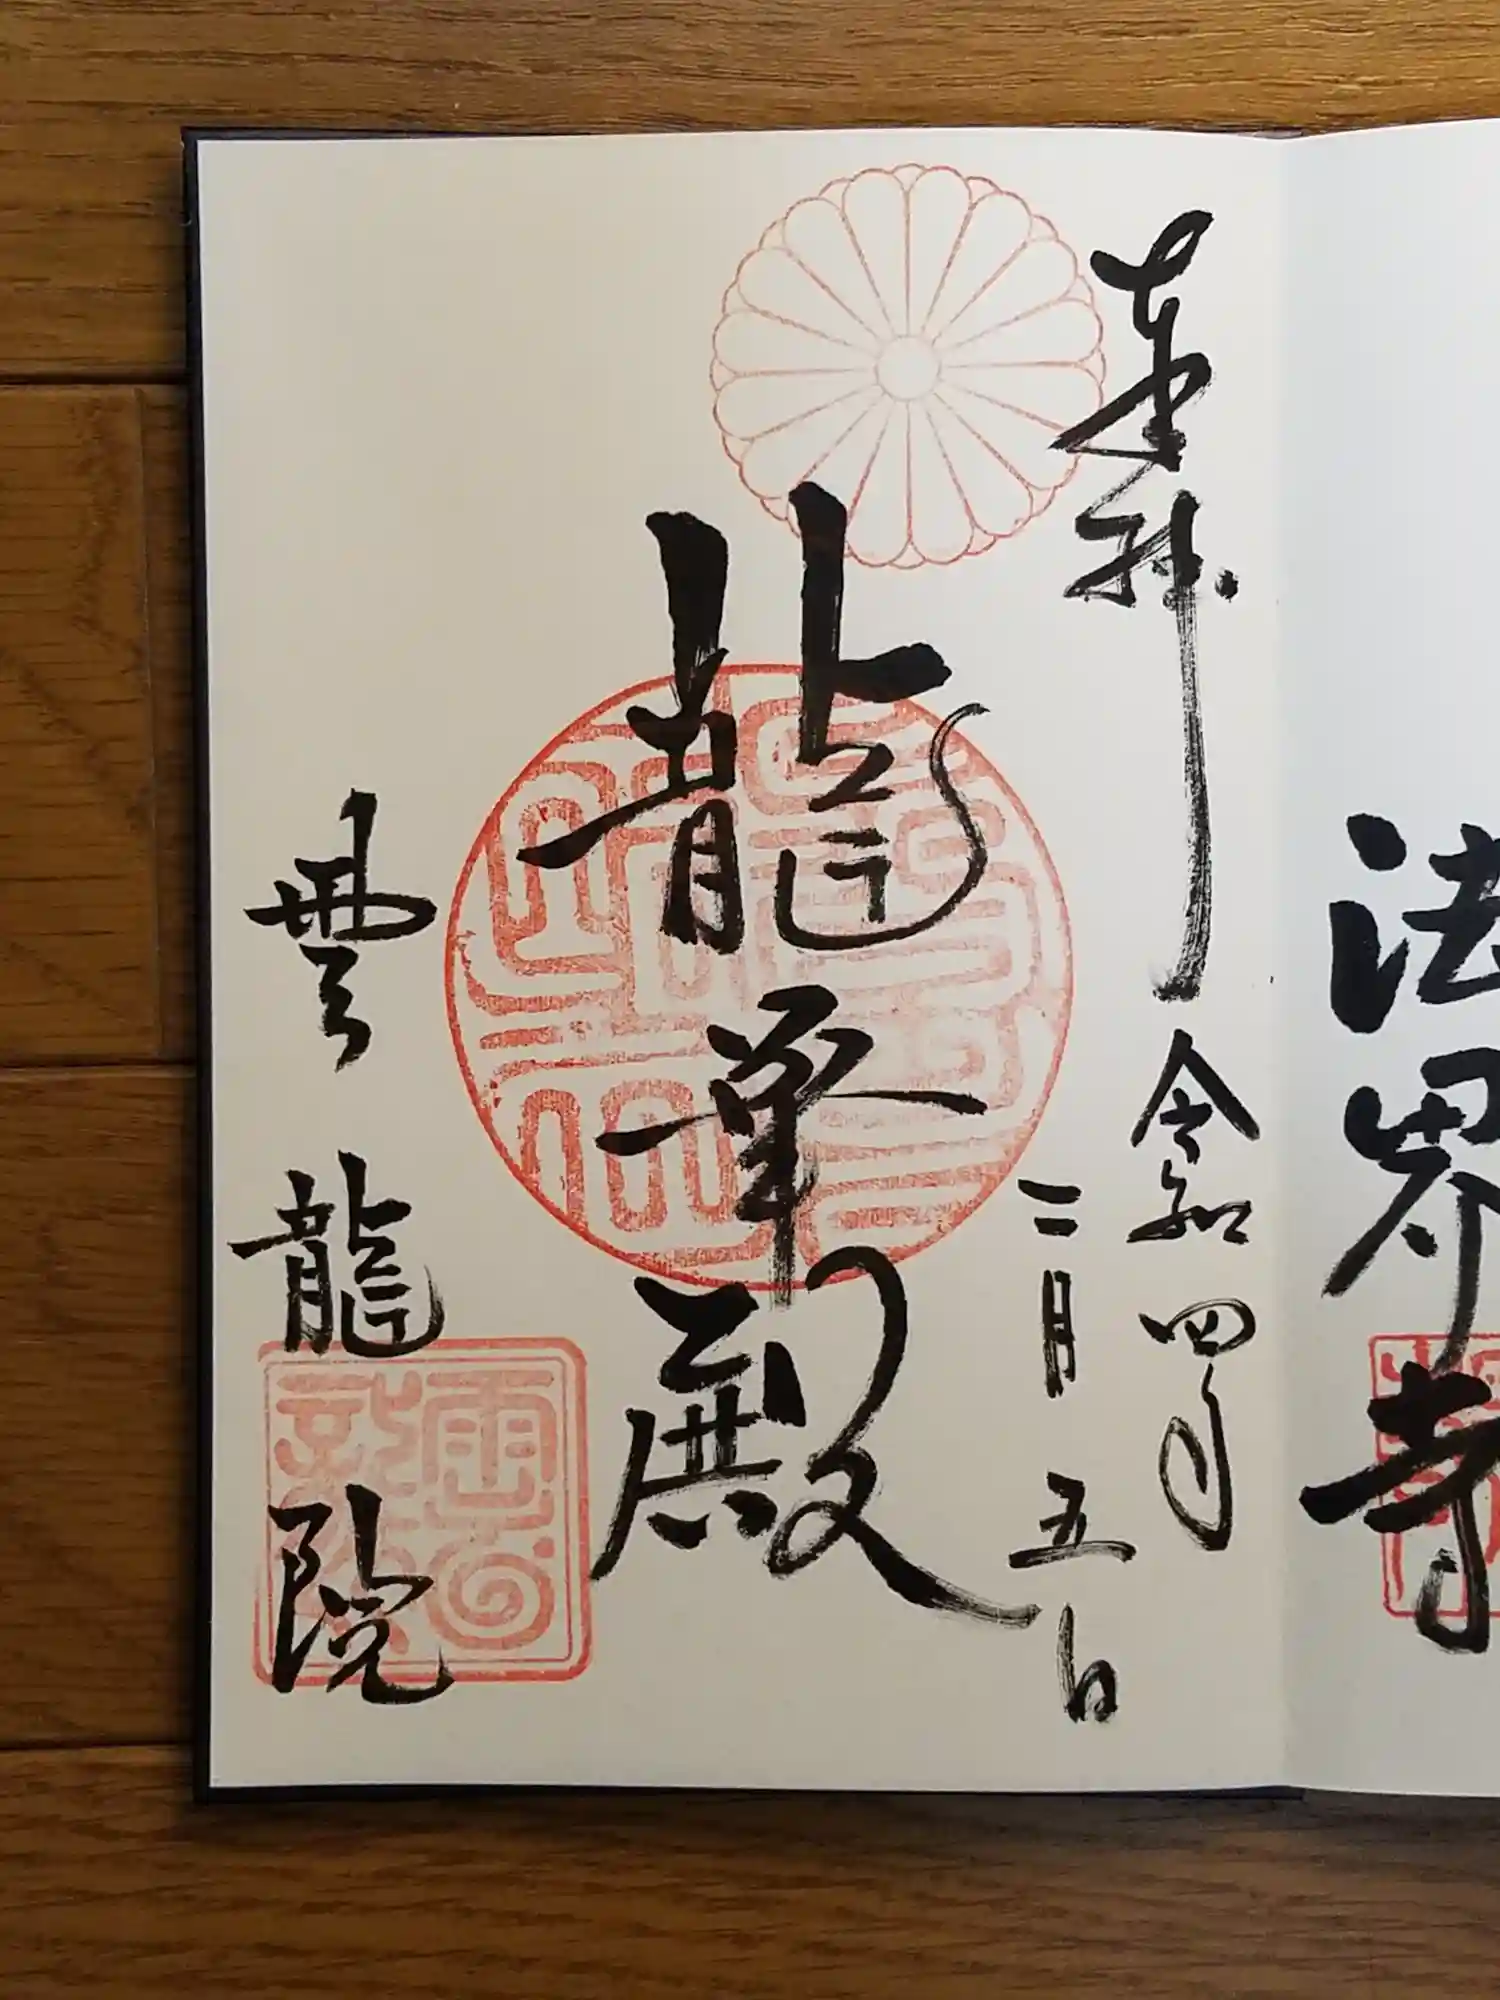 法界寺
奉拝 令和四年
二月五日
龍華殿
雲龍院